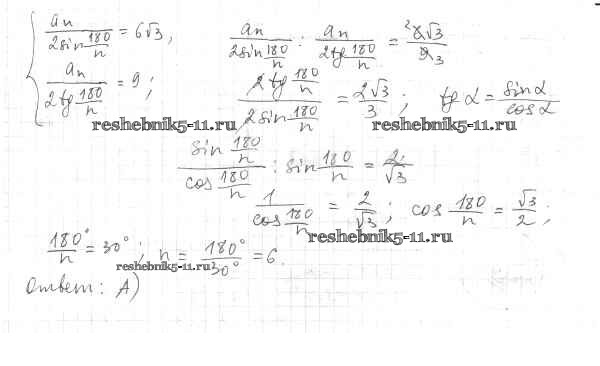 { aₙ / (2sin 180/n) = 6√3,
aₙ / (2tg 180/n) = 9;
aₙ / (2sin 180/n) : aₙ / (2tg 180/n) = ²6√3 / 9₃
(2tg 180/n) / (2sin 180/n) = 2√3/3; tg α = sin α / cos α
reshebnik5-11.ru reshebnik5-11.ru
(sin 180/n) / (cos 180/n) : sin 180/n = 2/√3
1 / (cos 180/n) = 2/√3; cos 180/n = √3/2;
reshebnik5-11.ru
180°/n = 30°; n = 180°/30° = 6.
reshebnik5-11.ru
Ответ: А)